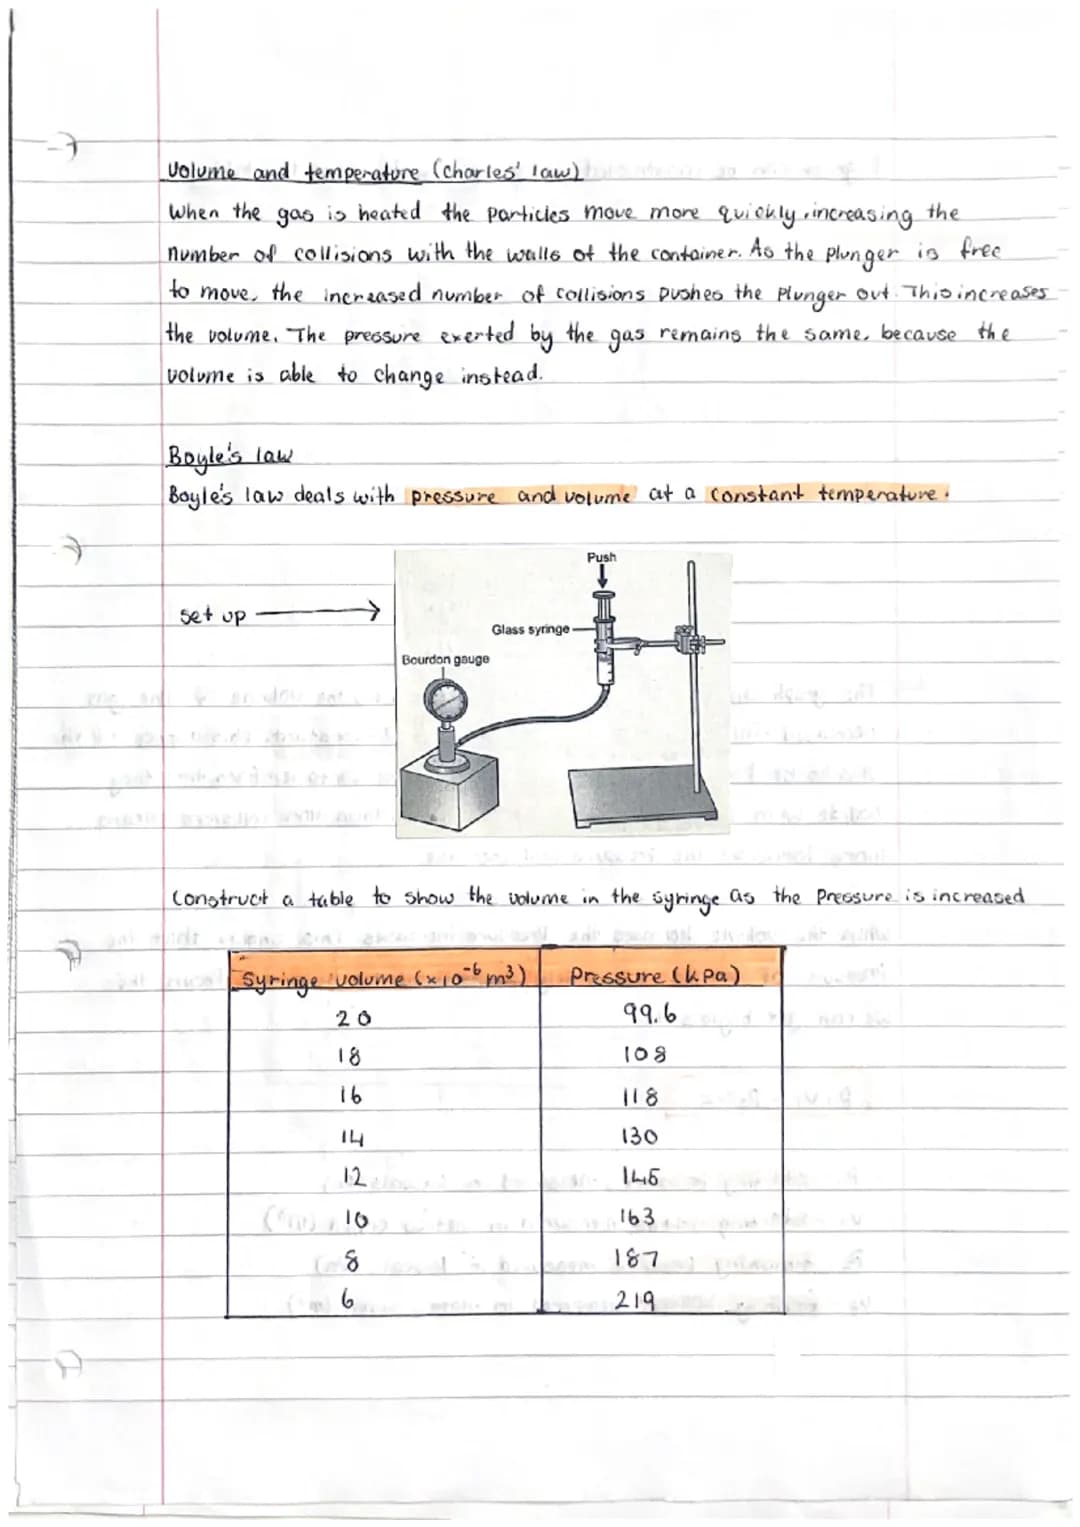 Volume and temperature (charles' law)
When the gas is heated the particles move more quickly, increasing the
number of collisions with the walls of the container. As the plunger is free
to move, the increased number of collisions pushes the plunger out. This increases
the volume. The pressure exerted by the gas remains the same, because the
volume is able to change instead.
Boyle's law
Boyle's law deals with pressure and volume at a constant temperature.
Push
set up
Glass syringe
Bourdon gauge
Construct a table to show the volume in the syringe as the pressure is increased
Syringe volume (×10⁻⁶ m³) Pressure (kPa)
20 99.6
18 108
16 118
14 130
12 145
10 163
8 187
6 219